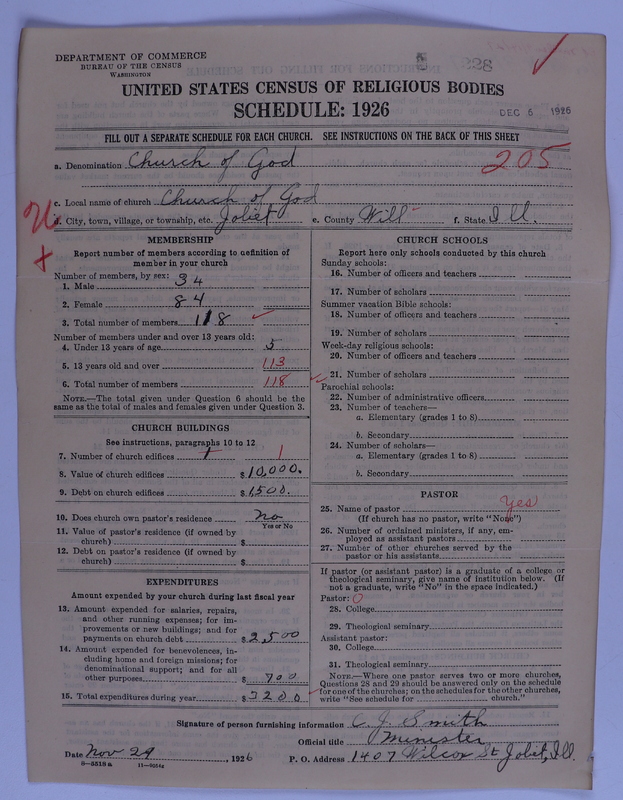 DEPARTMENT OF COMMERCE
BUREAU OF THE CENSUS
WASHINGTON
228
UNITED STATES CENSUS OF RELIGIOUS BODIES
SCHEDULE: 1926
DEC 6 1926
FILL OUT A SEPARATE SCHEDULE FOR EACH CHURCH. SEE INSTRUCTIONS ON THE BACK OF THIS SHEET
a. Denomination Church of God
205
c. Local name of church Church of God
d. City, town, village, or township, etc. Joliet e. County Will f. State Ill.
MEMBERSHIP
Report number of members according to definition of
member in your church
Number of members, by sex:
1. Male 34
2. Female 84
3. Total number of members 118
Number of members under and over 13 years old:
4. Under 13 years of age 5
5. 13 years old and over 113
6. Total number of members 118
NOTE.—The total given under Question 6 should be the
same as the total of males and females given under Question 3.
CHURCH BUILDINGS
See instructions, paragraphs 10 to 12
7. Number of church edifices 1 1
8. Value of church edifices $10,000.
9. Debt on church edifices $1,500.
10. Does church own pastor's residence No
Yes or No
11. Value of pastor's residence (if owned by
church) $
12. Debt on pastor's residence (if owned by
church) $
EXPENDITURES
Amount expended by your church during last fiscal year
13. Amount expended for salaries, repairs,
and other running expenses; for im-
provements or new buildings; and for
payments on church debt $2,500
14. Amount expended for benevolences, in-
cluding home and foreign missions; for
denominational support; and for all
other purposes $700
15. Total expenditures during year $3200
CHURCH SCHOOLS
Report here only schools conducted by this church
Sunday schools:
16. Number of officers and teachers
17. Number of scholars
Summer vacation Bible schools:
18. Number of officers and teachers
19. Number of scholars
Week-day religious schools:
20. Number of officers and teachers
21. Number of scholars
Parochial schools:
22. Number of administrative officers
23. Number of teachers—
a. Elementary (grades 1 to 8)
b. Secondary
24. Number of scholars—
a. Elementary (grades 1 to 8)
b. Secondary
PASTOR
25. Name of pastor Yes
(If church has no pastor, write "None")
26. Number of ordained ministers, if any, em-
ployed as assistant pastors
27. Number of other churches served by the
pastor or his assistants
If pastor (or assistant pastor) is a graduate of a college or
theological seminary, give name of institution below. (If
not a graduate, write "No" in the space indicated.)
Pastor: O
28. College
29. Theological seminary
Assistant pastor:
30. College
31. Theological seminary
NOTE.—Where one pastor serves two or more churches,
Questions 28 and 29 should be answered only on the schedule
for one of the churches; on the schedules for the other churches,
write "See schedule for church."
Signature of person furnishing information C. J. Smith
Official title Minister
Date Nov 29, 1926 P. O. Address 1407 Wilcox St Joliet, Ill.
8—5518a